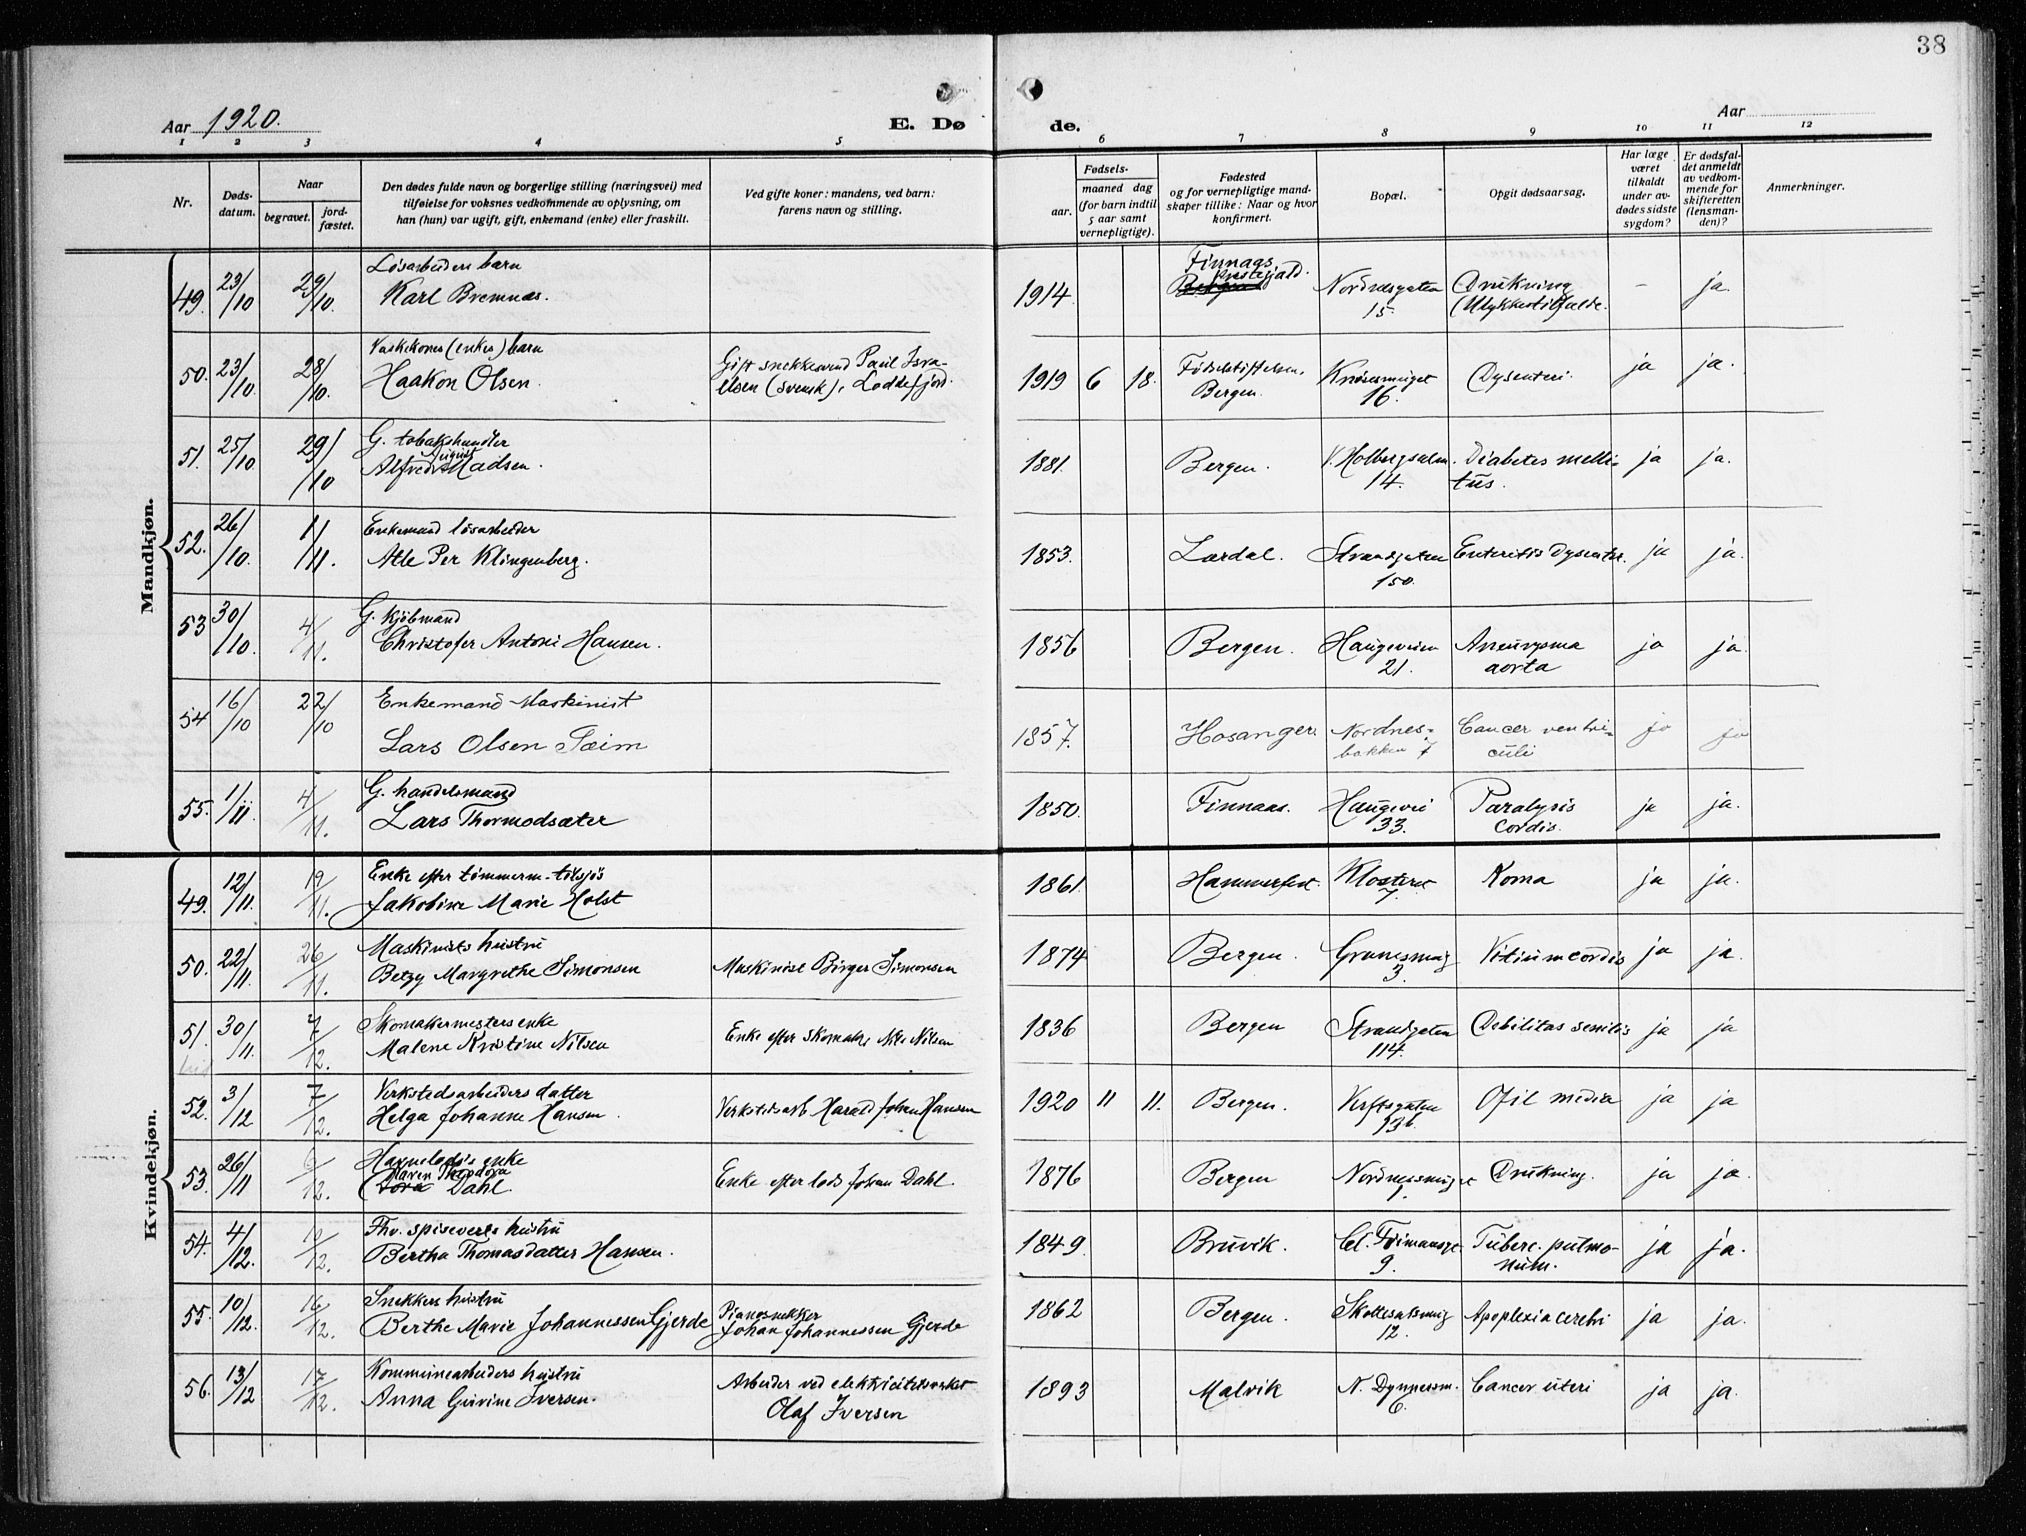 38
Aar 1920.
E. Dø
de.
Aar
1 2 3 4 5 6 7 8 9 10 11 12
Nr.
Døds-
datum.
Naar
begravet.
jord-
fæstet.
Den dødes fulde navn og borgerlige stilling (næringsvei) med
tilføielse for voksnes vedkommende av oplysning, om
han (hun) var ugift, gift, enkemand (enke) eller fraskilt.
Ved gifte koner: mandens, ved barn:
farens navn og stilling.
Fødsels-
aar.
maaned dag
(for barn indtil
5 aar samt
vernepligtige).
Fødested
og for vernepligtige mand-
skaper tillike: Naar og hvor
konfirmert.
Bopæl.
Opgit dødsaarsag.
Har læge
været
tilkaldt
under av-
dødes sidste
sygdom?
Er dødsfal-
det anmeldt
av vedkom-
mende for
skifteretten
(lensman-
den)?
Anmerkninger.
Mandkjøn.
49. 23/10 29/10. Løsarbeiders barn
Karl Bremnes.
1914. Finnaas
prestegjeld.
Bergen
Nordnesgaten
15.
Drukning
(Ulykkestilfælde.
- ja.
50. 23/10. 28/10. Vaskekones (enkes) barn
Haakon Olsen.
Gift snekkersvend Paul Isra-
elsen (svensk), Loddefjord.
1919 6 18. Fødselstiftelsen,
Bergen.
Knøsesmuget
16.
Dysenteri.
ja ja.
51. 25/10 29/10 G. tobakshandler
August
Alfred Madsen.
1881. Bergen.
V. Holbergsalm.
14.
Diabetes melli-
tus.
ja ja.
52. 26/10. 1/11. Enkemand løsarbeider
Atle Per Klingenberg.
1853. Lærdal.
Strandgaten
150.
Enteritis Dysenter.
ja ja.
53 30/10. 4/11. G. kjøbmand
Christofer Antoni Hansen.
1856 Bergen.
Haugeveien
21.
Aneurysma
aorta
ja ja
54 16/10 22/10 Enkemand Maskinist
Lars Olsen Sæim
1857. Hosanger.
Nordnes-
bakken 7
Cancer ventri-
culi
ja ja
55. 1/11. 4/11. G. handelsmand
Lars Thormodsæter
1850. Finnaas.
Haugevei
33.
Paralysis
cordis.
ja ja.
Kvindekjøn.
49. 12/11. 19/11. Enke efter tømmerm. tilsjøs
Jakobine Marie Holst
1861. Hammerfest.
Klosteret
7.
Koma
ja ja.
50. 22/11. 26/11. Maskinists hustru
Betzy Margrethe Simonsen
Maskinist Birger Simonsen
1874 Bergen.
Grønesmug
3.
Vitium cordis
ja ja.
51. 30/11. 7/12. Skomakermesters enke
Malene Kristine Nilsen
Enke efter skomak. Nils Nilsen
1836 Bergen
Strandgaten
114.
Debilitas senilis
ja ja
52. 3/12 7/12. Verkstedsarbeiders datter
Helga Johanne Hansen.
Verkstedsarb. Harald Johan Hansen
1920 11 11. Bergen.
Verftsgaten
13b.
Otit media
ja ja
53. 26/11 6/12. Havnelods's enke
Maren Theodora
Tora Dahl.
Enke efter lods Johan Dahl.
1876 Bergen
Nordnessmuget
Drukning.
ja ja.
54. 4/12. 10/12. Fhv. spiseverts hustru
Bertha Thomasdatter Hansen.
1849. Bruvik.
Cl. Frimansgt.
9.
Tuberc. pulmo-
num.
ja ja.
55. 10/12. 16/12. Snekkers hustru
Berthe Marie Johannessen Gjerde
Pianosnekker
Johan Johannessen Gjerde
1862 Bergen.
Skottesalsmug
12.
Apoplexia cerebri
ja ja.
56. 13/12 17/12. Kommunearbeiders hustru
Anna Gurine Iversen.
Arbeider ved elektricitetsverket
Olaf Iversen
1893 Malvik
N. Dynnersm.
6.
Cancer uteri
ja ja.